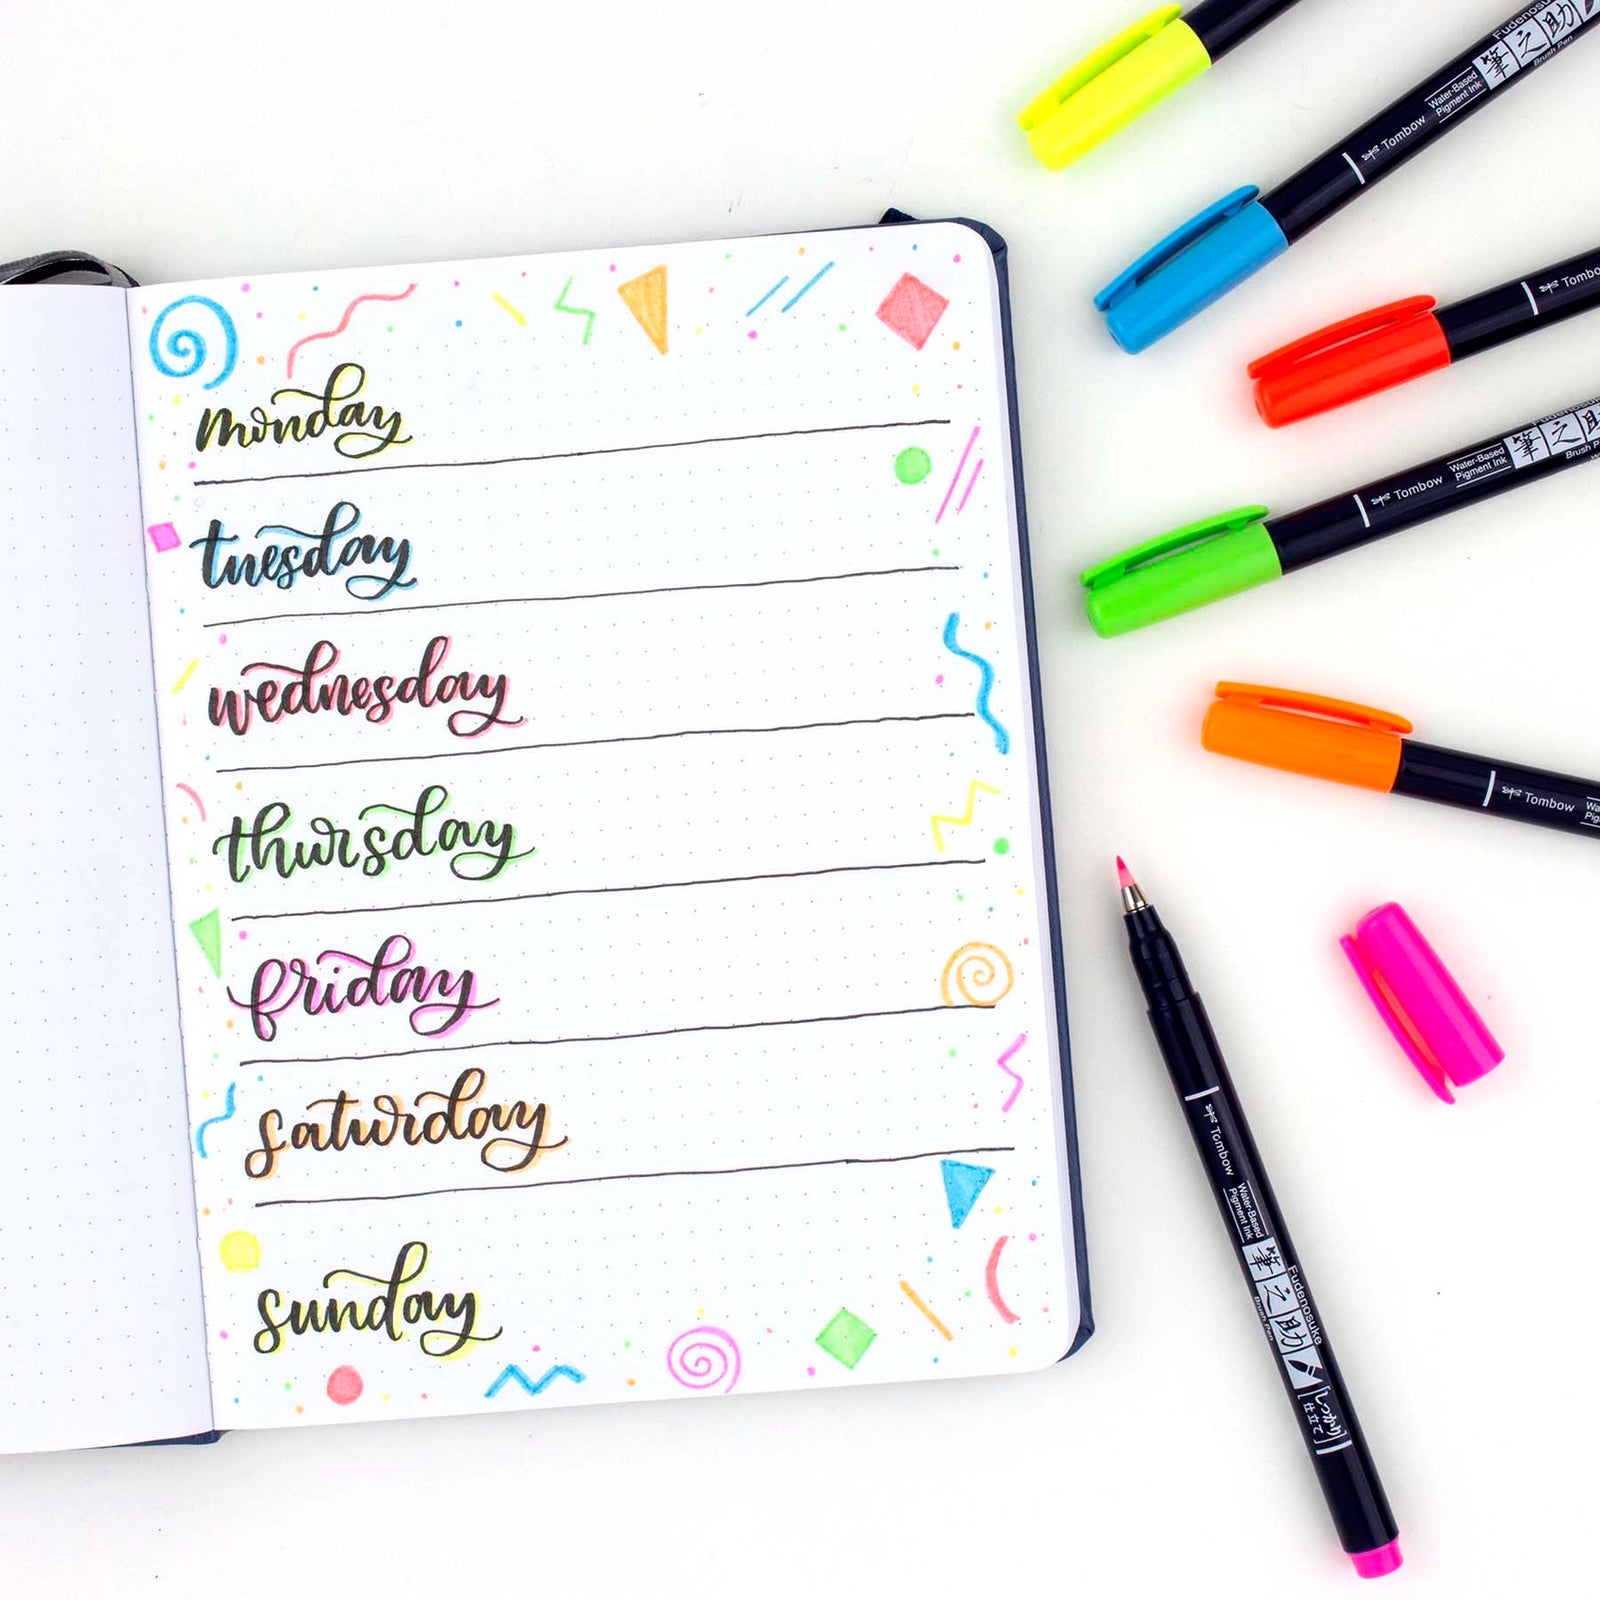 monday
tuesday
wednesday
thursday
friday
saturday
sunday
Tombow
Water-Based
Pigment Ink
Fudenosu
筆之助
Brush Pen
Tombo
Tombow
Water-Based
Pigment Ink
筆之助
Brush
Tombow
Wa
Pig
Tombow
Water-Based
Pigment Ink
Fudenosuke
筆之助
Brush Pen
[しっかり]
仕立て